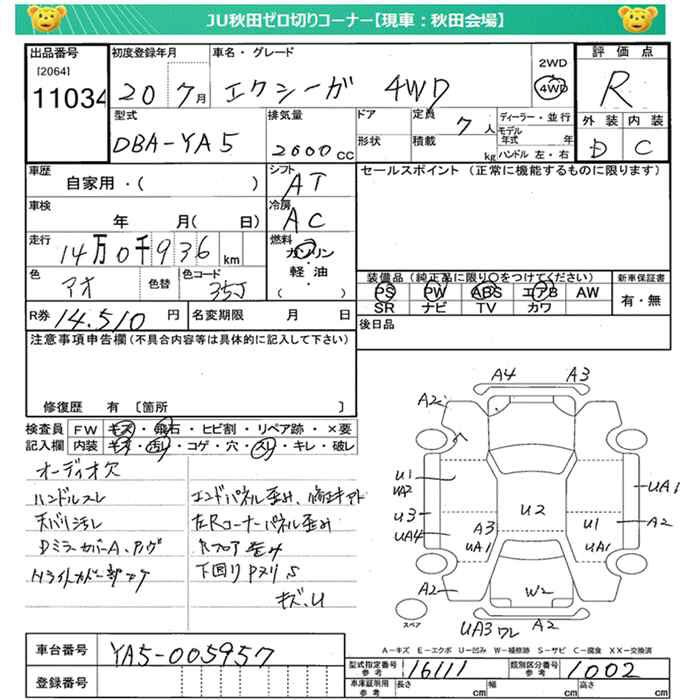 JU秋田ゼロ切りコーナー【現車：秋田会場】
出品番号 初度登録年月 車名・グレード 2WD 評価点
[2064]
11034 20 7月 エクシーガ 4WD 4WD R
型式 排気量 ドア 定員 7人 ディーラー・並行 外装 内装
DBA-YA5 2000cc 形状 積載 kg モデル年式 年 D C
ハンドル 左・右
車歴 シフト セールスポイント（正常に機能するものに限ります）
自家用・（ ） AT
車検 冷房
年 月（ 日） AC
走行 燃料
14万0千936km ガソリン・軽油・（ ）
色 色替 色コード 装備品（純正品に限り○をつけてください） 新車保証書
アオ 35J PS PW ABS エアB AW 有・無
SR ナビ TV カワ
R券 14.510円 名変期限 月 日 後日品
注意事項申告欄（不具合内容等は具体的に記入して下さい）
修復歴 有 〔箇所 〕
検査員 FW キズ・飛石・ヒビ割・リペア跡・×要
記入欄 内装 キズ・汚レ・コゲ・穴・スレ・キレ・破レ
オーディオ欠
ハンドルスレ エンドパネル歪み、
天バリ汚レ 左Rコーナーパネル歪み
DミラーカバーA、 Rフロア歪み
下回り Pヌリ S
キズ、U
A4 A3
A2
U1 UA2 UA1
U3 U2 U1 A2
UA4 A3 UA1 UA1
A2 W2
スペア UA3 ワレ A2
A－キズ E－エクボ U－凹み W－補修跡 S－サビ C－腐食 XX－交換済
車台番号 YA5-005957 型式指定番号 参考 16111 類別区分番号 参考 1002
登録番号 車庫証明用 参考 長さ cm 幅 cm 高さ cm